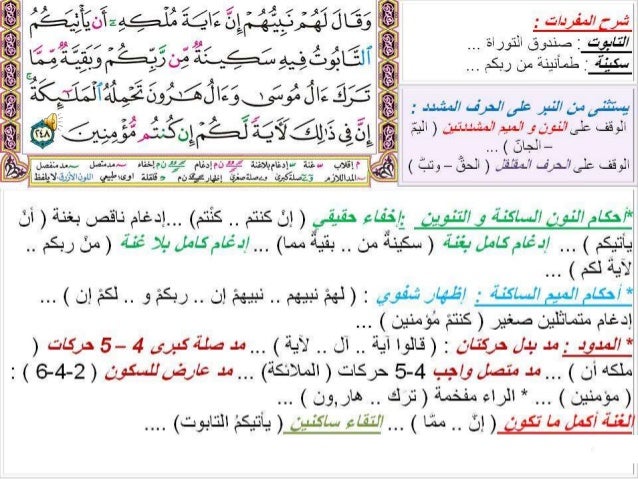 وَقَالَ لَهُمْ نَبِيُّهُمْ إِنَّ ءَايَةَ مُلْكِهِۦٓ أَن يَأْتِيَكُمُ
ٱلتَّابُوتُ فِيهِ سَكِينَةٌ مِّن رَّبِّكُمْ وَبَقِيَّةٌ مِّمَّا
تَرَكَ ءَالُ مُوسَىٰ وَءَالُ هَٰرُونَ تَحْمِلُهُ ٱلْمَلَٰٓئِكَةُ
إِنَّ فِى ذَٰلِكَ لَءَايَةً لَّكُمْ إِن كُنتُم مُّؤْمِنِينَ ٢٤٨
شرح المفردات :
التابوت : صندوق التوراة ...
سكينة : طمأنينة من ربكم ...
يستثنى من النبر على الحرف المشدد :
الوقف على النون و الميم المشددتين ( اليمّ
– الجانّ ) ...
الوقف على الحرف المقلقل ( الحقّ – وتبّ )
*أحكام النون الساكنة و التنوين : إخفاء حقيقي ( إنْ كنتم .. كنْتم) ...إدغام ناقص بغنة ( أنْ
يأتيكم ) ... إدغام كامل بغنة ( سكينةٌ من .. بقيةٌ مما) ... إدغام كامل بلا غنة ( منْ ربكم ..
لآيةً لكم ) ...
* أحكام الميم الساكنة : إظهار شفوي : ( لهمْ نبيهم .. نبيهمْ إن .. ربكمْ و .. لكمْ إن ) ...
إدغام متماثلين صغير ( كنتمْ مُؤمنين ) ...
* المدود : مد بدل حركتان : ( قالوا آية .. آل .. لآية ) ... مد صلة كبرى 4 – 5 حركات (
ملكه أن ) ... مد متصل واجب 4-5 حركات ( الملائكة) ... مد عارض للسكون ( 2-4-6 ) :
( مؤمنين ) ... * الراء مفخمة ( ترك .. هار,ون ) ...
الغنة أكمل ما تكون ( إنّ .. ممّا ) ... التقاء ساكنين ( يأتيكمُ التابوت) ....